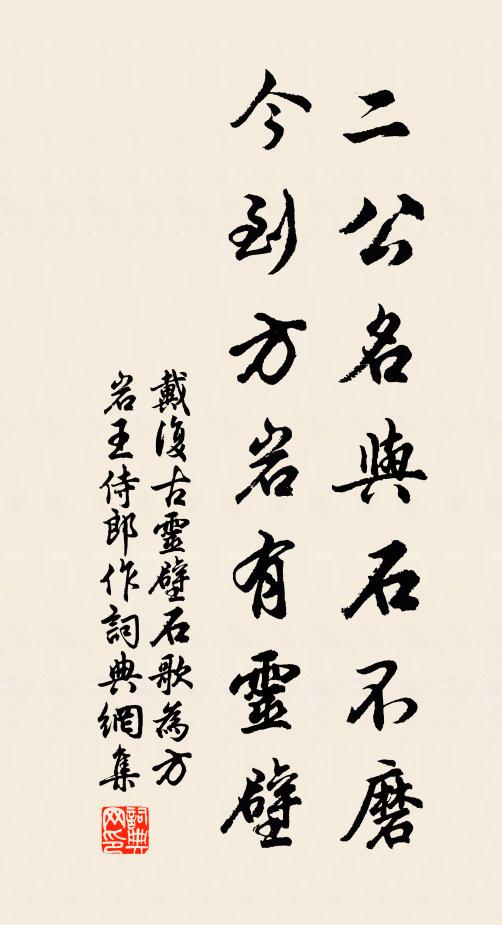 二公名與石不磨
今到方岩有靈壁
戴復古靈壁石歌為方
岩王侍郎作詞典網集
詞典網印